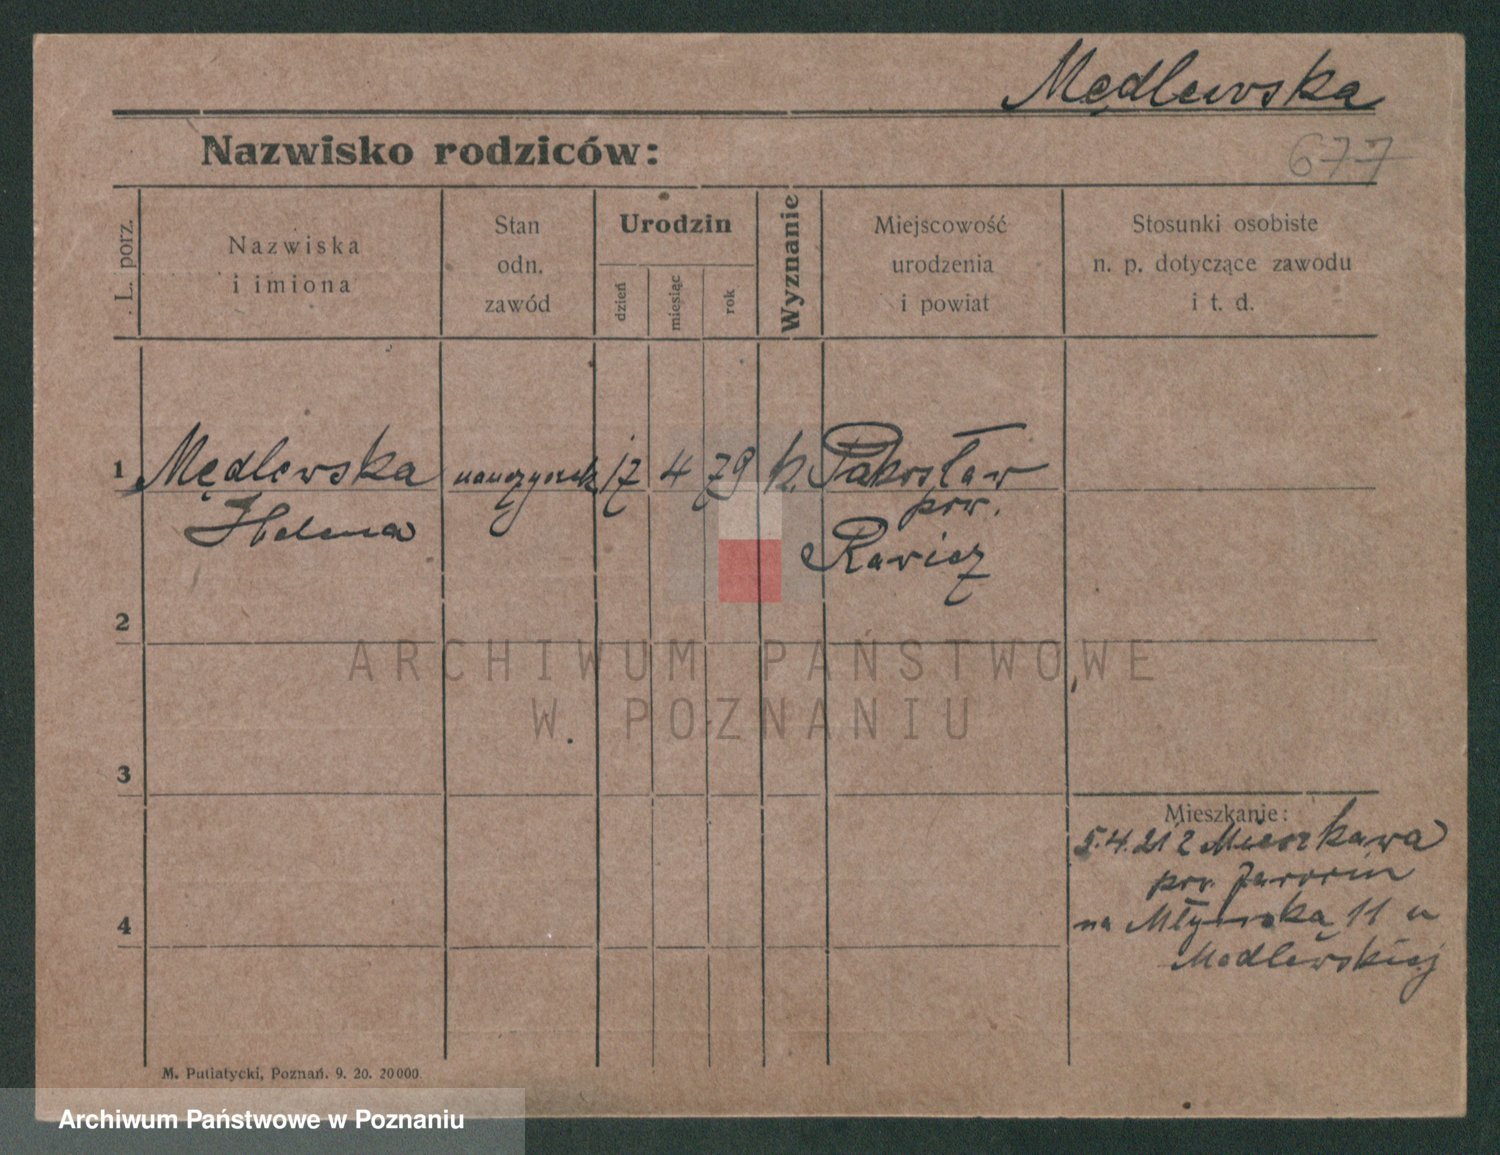 Mędlewska
677
Nazwisko rodziców:
L. porz.
Nazwiska
i imiona
Stan
odn.
zawód
Urodzin
dzień
miesiąc
rok
Wyznanie
Miejscowość
urodzenia
i powiat
Stosunki osobiste
n. p. dotyczące zawodu
i t. d.
1 Mędlewska 17 4 79 k. Pakosław
Helena pow.
Rawicz
2
ARCHIWUM PAŃSTWOWE
W POZNANIU
3
Mieszkanie:
5.4.21 z Mieszkowa
pow. Jarocin
4
na Młyńską 11 u
Medlewskiej
M. Putiatycki, Poznań. 9. 20. 20000.
Archiwum Państwowe w Poznaniu